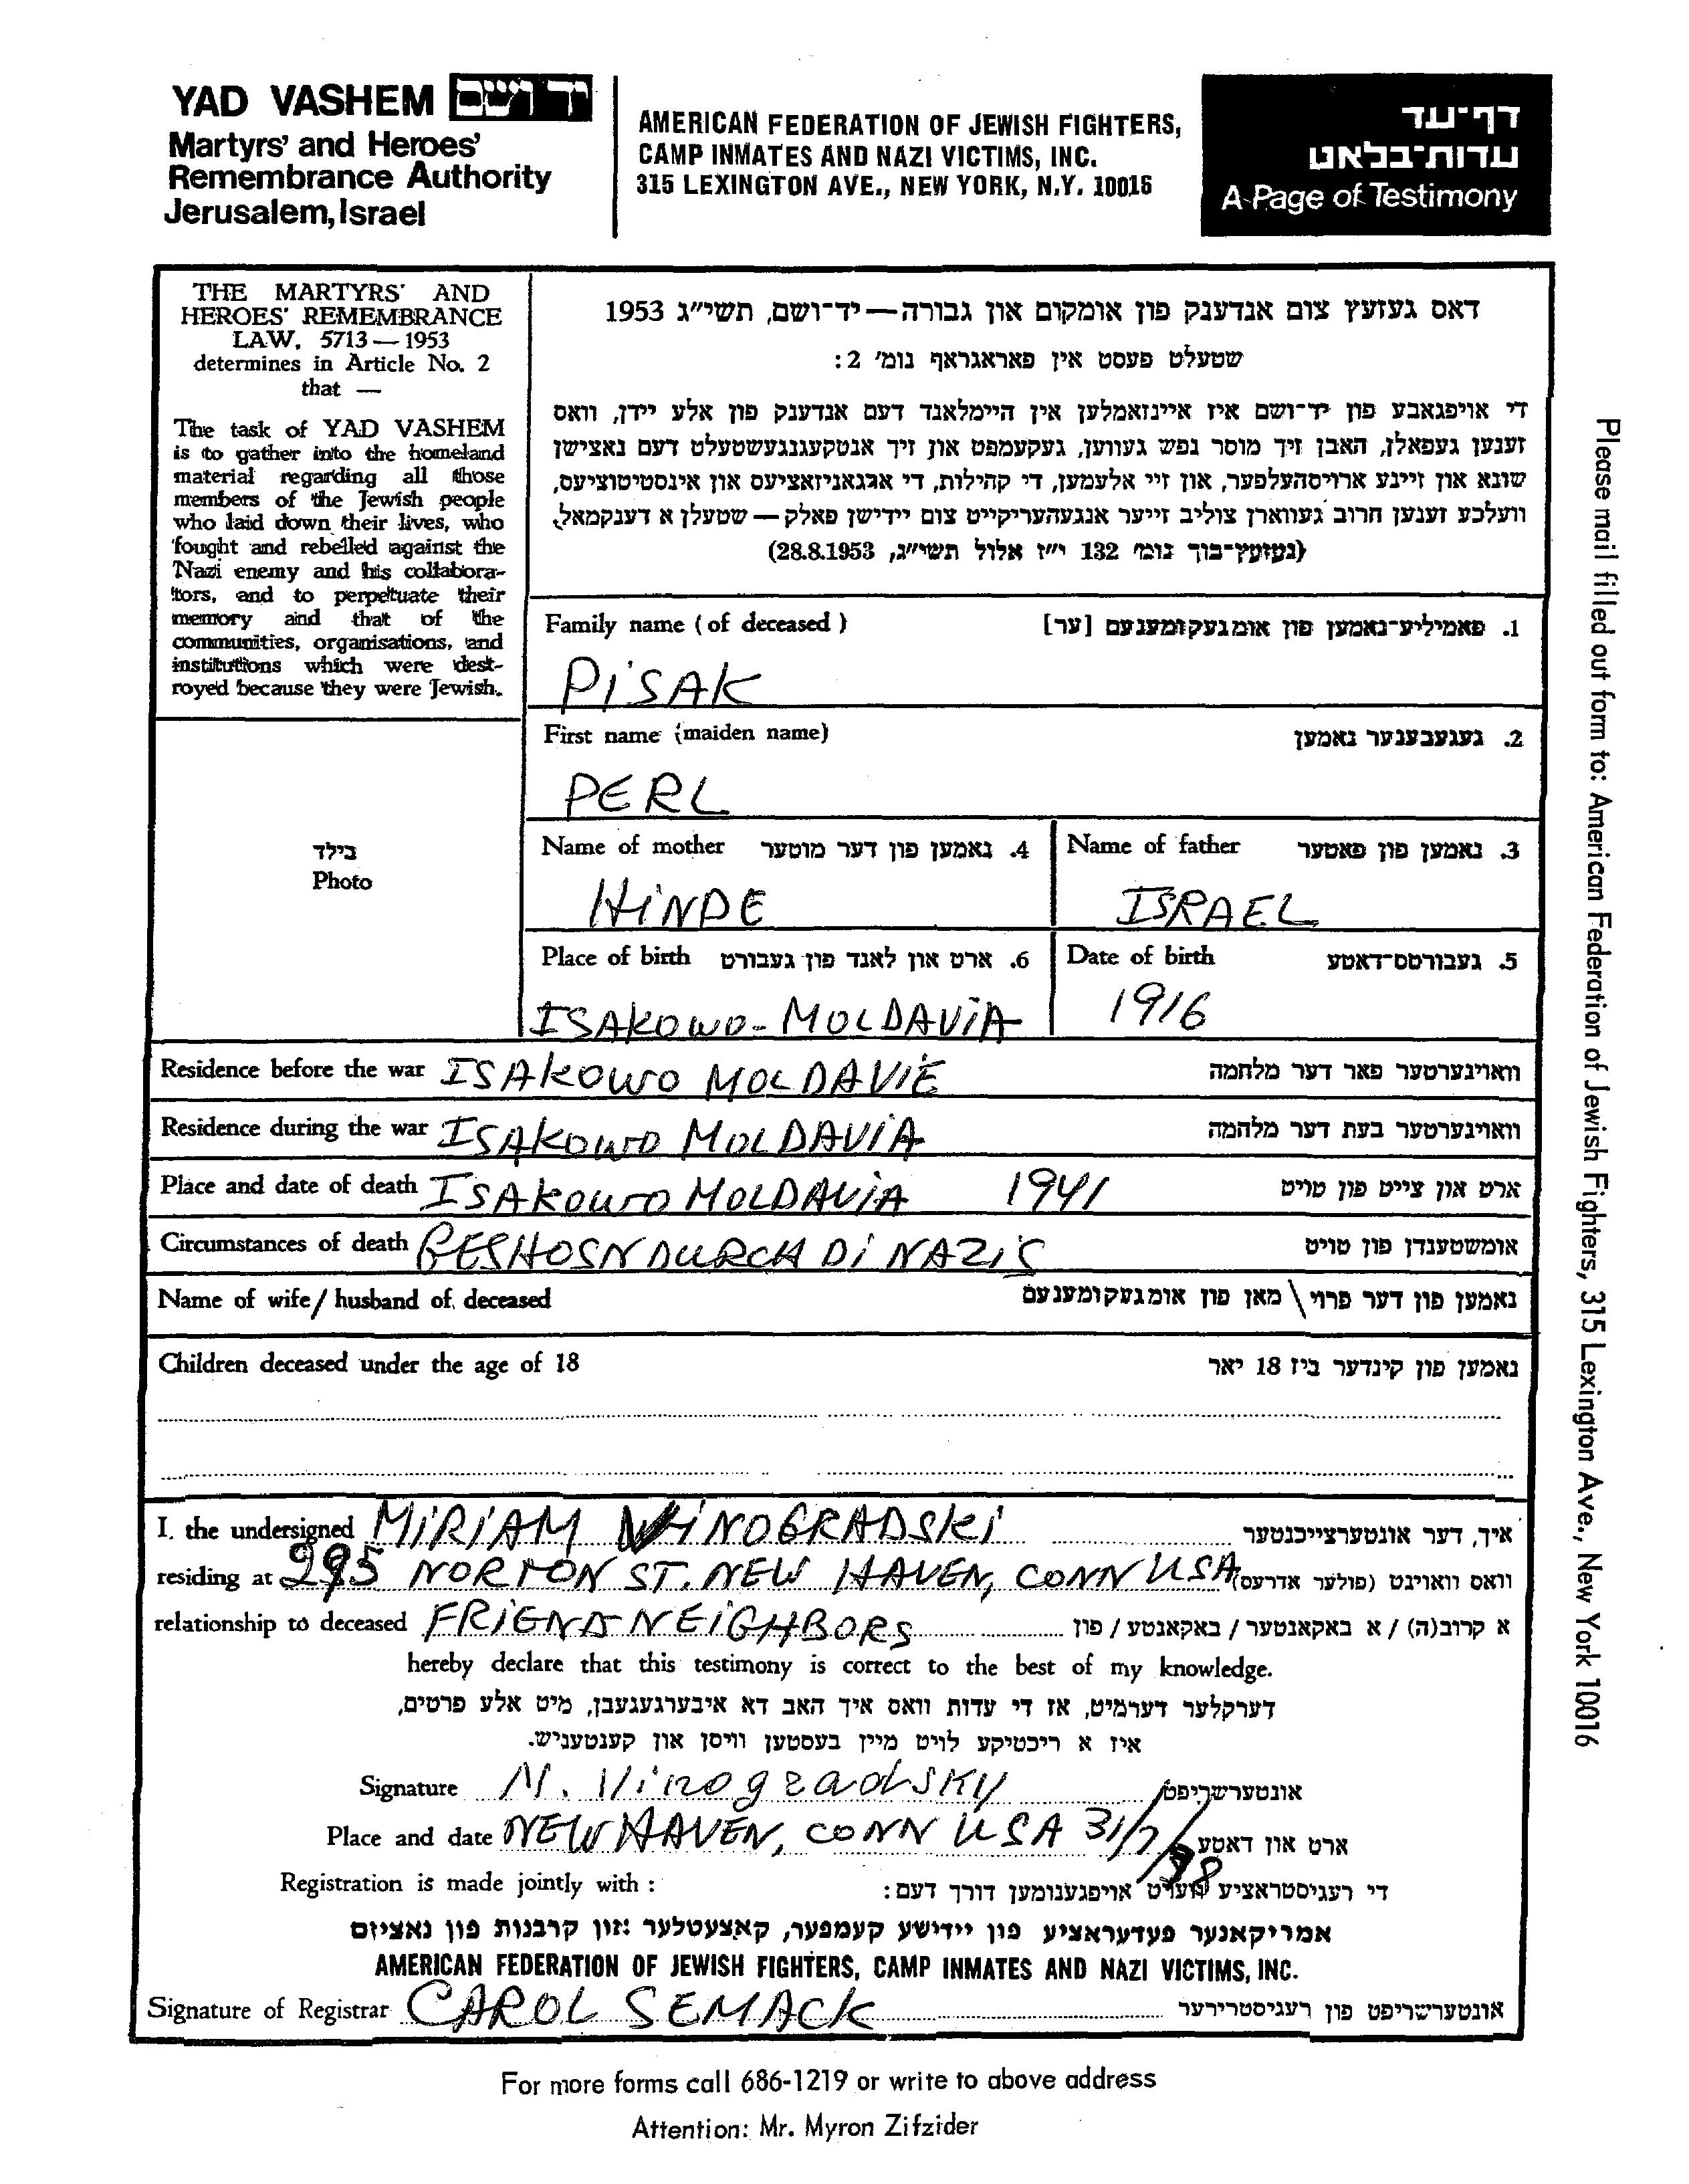 YAD VASHEM יד ושם
Martyrs' and Heroes'
Remembrance Authority
Jerusalem, Israel
AMERICAN FEDERATION OF JEWISH FIGHTERS,
CAMP INMATES AND NAZI VICTIMS, INC.
315 LEXINGTON AVE., NEW YORK, N.Y. 10016
דף-עד
עדות-בלאט
A Page of Testimony
THE MARTYRS' AND
HEROES' REMEMBRANCE
LAW, 5713 — 1953
determines in Article No. 2
that —
The task of YAD VASHEM
is to gather into the homeland
material regarding all those
members of the Jewish people
who laid down their lives, who
fought and rebelled against the
Nazi enemy and his collabora-
tors, and to perpetuate their
memory and that of the
communities, organisations, and
institutions which were dest-
royed because they were Jewish.
דאס געזעץ צום אנדענק פון אומקום און גבורה — יד-ושם, תשי״ג 1953
שטעלט פעסט אין פאראגראף נומ׳ 2:
די אויפגאבע פון יד-ושם איז איינזאמלען אין היימלאנד דעם אנדענק פון אלע יידן, וואס
זענען געפאלן, האבן זיך מוסר נפש געווען, געקעמפט און זיך אנטקעגנגעשטעלט דעם נאצישן
שונא און זיינע ארויסהעלפער, און זיי אלעמען, די קהילות, די ארגאניזאציעס און אינסטיטוציעס,
וועלכע זענען חרוב געווארן צוליב זייער אנגעהעריקייט צום יידישן פאלק — שטעלן א דענקמאל.
(געזעץ-בוך נומ׳ 132 י״ז אלול תשי״ג, 28.8.1953)
Family name (of deceased) 1. פאמיליע-נאמען פון אומגעקומענעם [ער]
PISAK
First name (maiden name) 2. געגעבענער נאמען
PERL
Name of mother 4. נאמען פון דער מוטער
HINDE
Name of father 3. נאמען פון פאטער
ISRAEL
Place of birth 6. ארט און לאנד פון געבורט
ISAKOWO - MOLDAVIA
Date of birth 5. געבורטס-דאטע
1916
בילד
Photo
Residence before the war ISAKOWO MOLDAVIE וואוינערטער פאר דער מלחמה
Residence during the war ISAKOWO MOLDAVIA וואוינערטער בעת דער מלחמה
Place and date of death ISAKOWO MOLDAVIA 1941 ארט און צייט פון טויט
Circumstances of death GESHOSN DURCH DI NAZIS אומשטענדן פון טויט
Name of wife / husband of deceased נאמען פון דער פרוי \ מאן פון אומגעקומענעם
Children deceased under the age of 18 נאמען פון קינדער ביז 18 יאר
I, the undersigned MIRIAM WINOGRADSKI איך, דער אונטערצייכנטער
residing at 295 NORTON ST. NEW HAVEN, CONN USA וואס וואוינט (פולער אדרעס)
relationship to deceased FRIEND NEIGHBORS א קרוב(ה) / א באקאנטער / באקאנטע / פון
hereby declare that this testimony is correct to the best of my knowledge.
דערקלער דערמיט, אז די עדות וואס איך האב דא איבערגעגעבן, מיט אלע פרטים,
איז א ריכטיקע לויט מיין בעסטען וויסן און קענטעניש.
Signature M. Vinogradsky אונטערשריפט
Place and date NEW HAVEN, CONN USA 31/7/88 ארט און דאטע
Registration is made jointly with : די רעגיסטראציע ווערט אויפגענומען דורך דעם:
אמריקאנער פעדעראציע פון יידישע קעמפער, קאצעטלער און קרבנות פון נאציזם
AMERICAN FEDERATION OF JEWISH FIGHTERS, CAMP INMATES AND NAZI VICTIMS, INC.
Signature of Registrar CAROL SEMACK אונטערשריפט פון רעגיסטרירער
For more forms call 686-1219 or write to above address
Attention: Mr. Myron Zifzider
Please mail filled out form to: American Federation of Jewish Fighters, 315 Lexington Ave., New York 10016